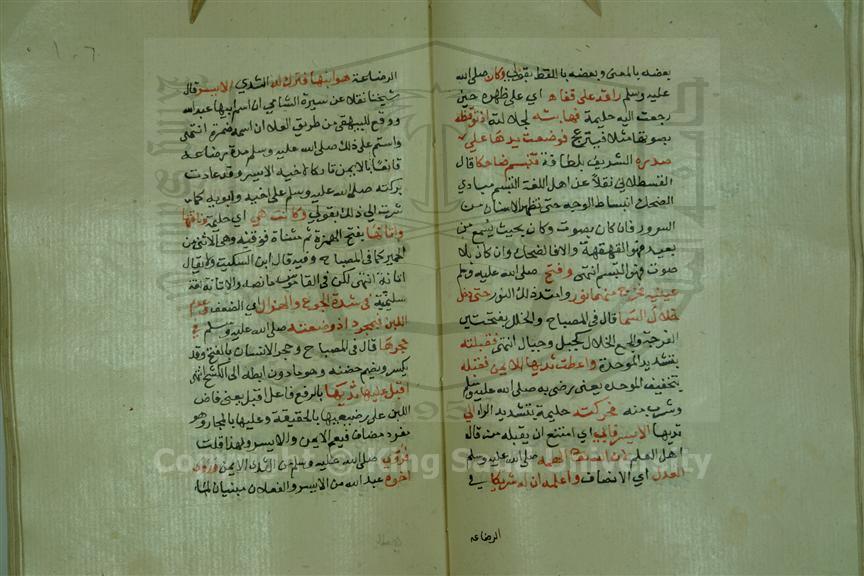 بعضه بالمعنى وبعضه بالمقط بقوطي وكان صلى الله
عليه وسلم راقد على قفاه اي على ظهره حين
رجعت اليه حليمة فهابته لجلالته ان توقظه
بصوتها مثلا فيتزعج فوضعت يدها على
صدره الشريف بلطافة فتبسم ضاحكا قال
القسطلاني نقلا عن اهل اللغة التبسم مبادي
الضحك انبساط الوجه حتى تظهر الاسنان من
السرور فان كان بصوت وكان بحيث يسمع من
بعيد فهو القهقهة والا فالضحك وان كان بلا
صوت فهو التبسم انتهى وفتح صلى الله عليه وسلم
عينيه فخرج منهما نور وامتد ذلك النور حتى دخل
خلال السما قال في المصباح والخلل بفتحتين
الفرجة والجمع الخلال كجبل وجبال انتهى فقبلته
بتشديد الموحدة واعطته ثديها الايمن فقبله
بتخفيف الموحدة يعني رضي به صلى الله عليه وسلم
وشرب منه فحركته حليمة بتشديد الراء الى
ثديها الايسر فابى اي امتنع ان يقبله من قال
اهل العلم لان الله تعالى الهمه صلى الله عليه وسلم
العدل اي الانصاف واعلمه ان له شريكا في
الرضاعة
الرضاعة هو ابنها فترك له الثدي الايسر قال
شيخنا نقلا عن سيرة الشامي ان اسم ابنها عبد الله
ووقع للبيهقي من طريق العلا ان اسمه ضمرة انتهى
واستمر على ذلك صلى الله عليه وسلم مدة رضاعه
قانعا بالايمن تاركا لاخيه الايسر وقد عادت
بركته صلى الله عليه وسلم على اخيه وابويه كما
شرت الى ذلك بقولي وكانت هي اي حليمة وناقتها
واتانها بفتح الهمزة ثم مثناة فوقية وهي الانثى من
الحمير كما في المصباح وفيه قال ابن السكيت ولا يقال
اتانة انتهى لكن في القاموس ما نصه والاتانة لغة
سليمية في شدة الجوع والهزال اي الضعف وعدم
اللبن فبمجرد اذ وضعته صلى الله عليه وسلم في
حجرها قال في المصباح وحجر الانسان بالفتح وقد
يكسر وبضم حضنه وهو ما دون ابطه الى الكشح انتهى
اقبل عليها ثدييها بالرفع فاعل اقبل يعني فاض
اللبن على رضيعيها بالحقيقة وعليها بالمجاز وهو
مفرد مضاف فيعم الايمن والايسر ولهذا قلت
فروى صلى الله عليه وسلم من الثدي الايمن وروى
اخوه عبد الله من الايسر والفعلان مبنيان لما
Copyright © King Saud University